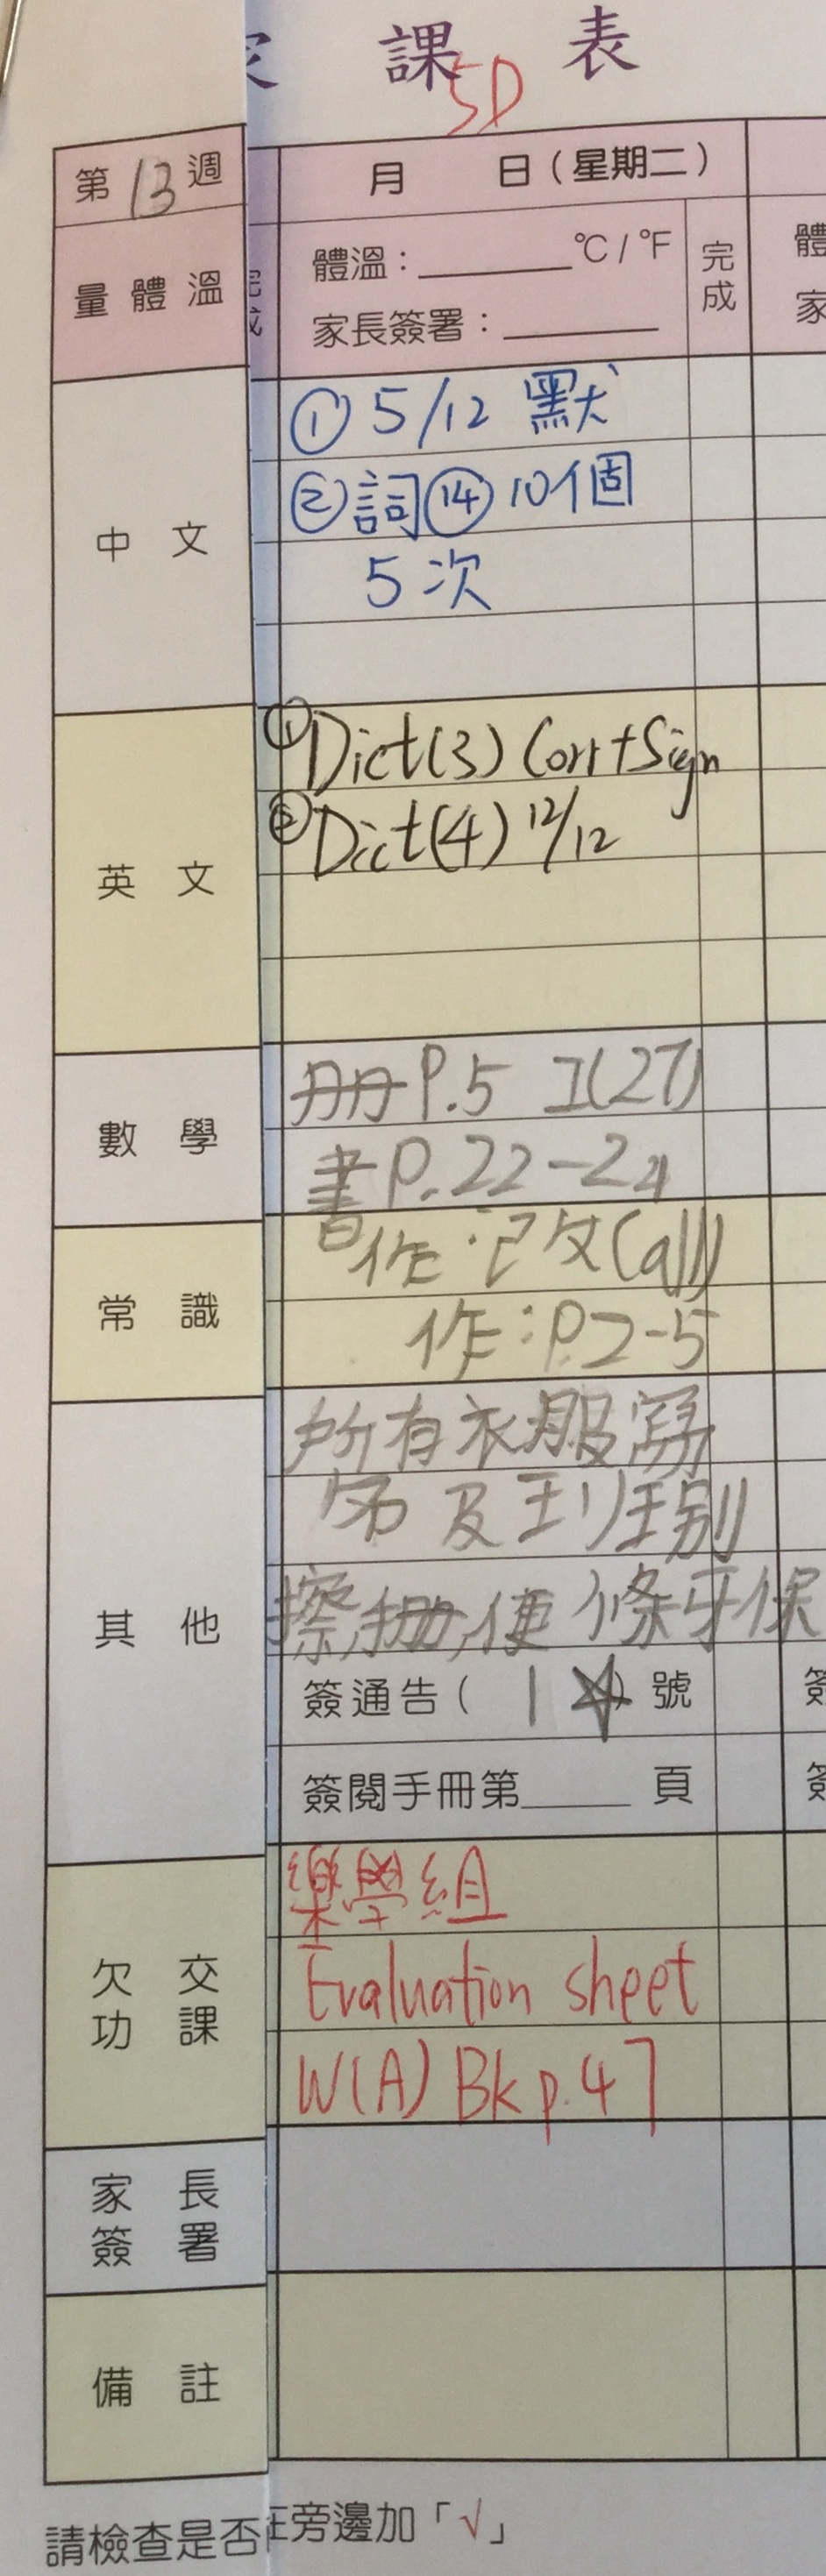 家 課 表
5D
第 13 週
月 日（星期二）
量 體 溫
體溫：______ °C / °F
完成
家長簽署：______
中 文
① 5/12 默
② 詞⑭ 10個
5次
英 文
① Dict(3) Corr+Sign
② Dict(4) 12/12
數 學
冊P.5 工(27)
書P.22-24
常 識
作:改(all)
作:P.2-5
其 他
所有衣服寫
及班別
擦,便條牙保
簽通告（ 1 ☆ ）號
簽閱手冊第_____頁
欠 交 功 課
樂學組
Evaluation sheet
W(A) Bk p.47
家 長 簽 署
備 註
請檢查是否
旁邊加「√」